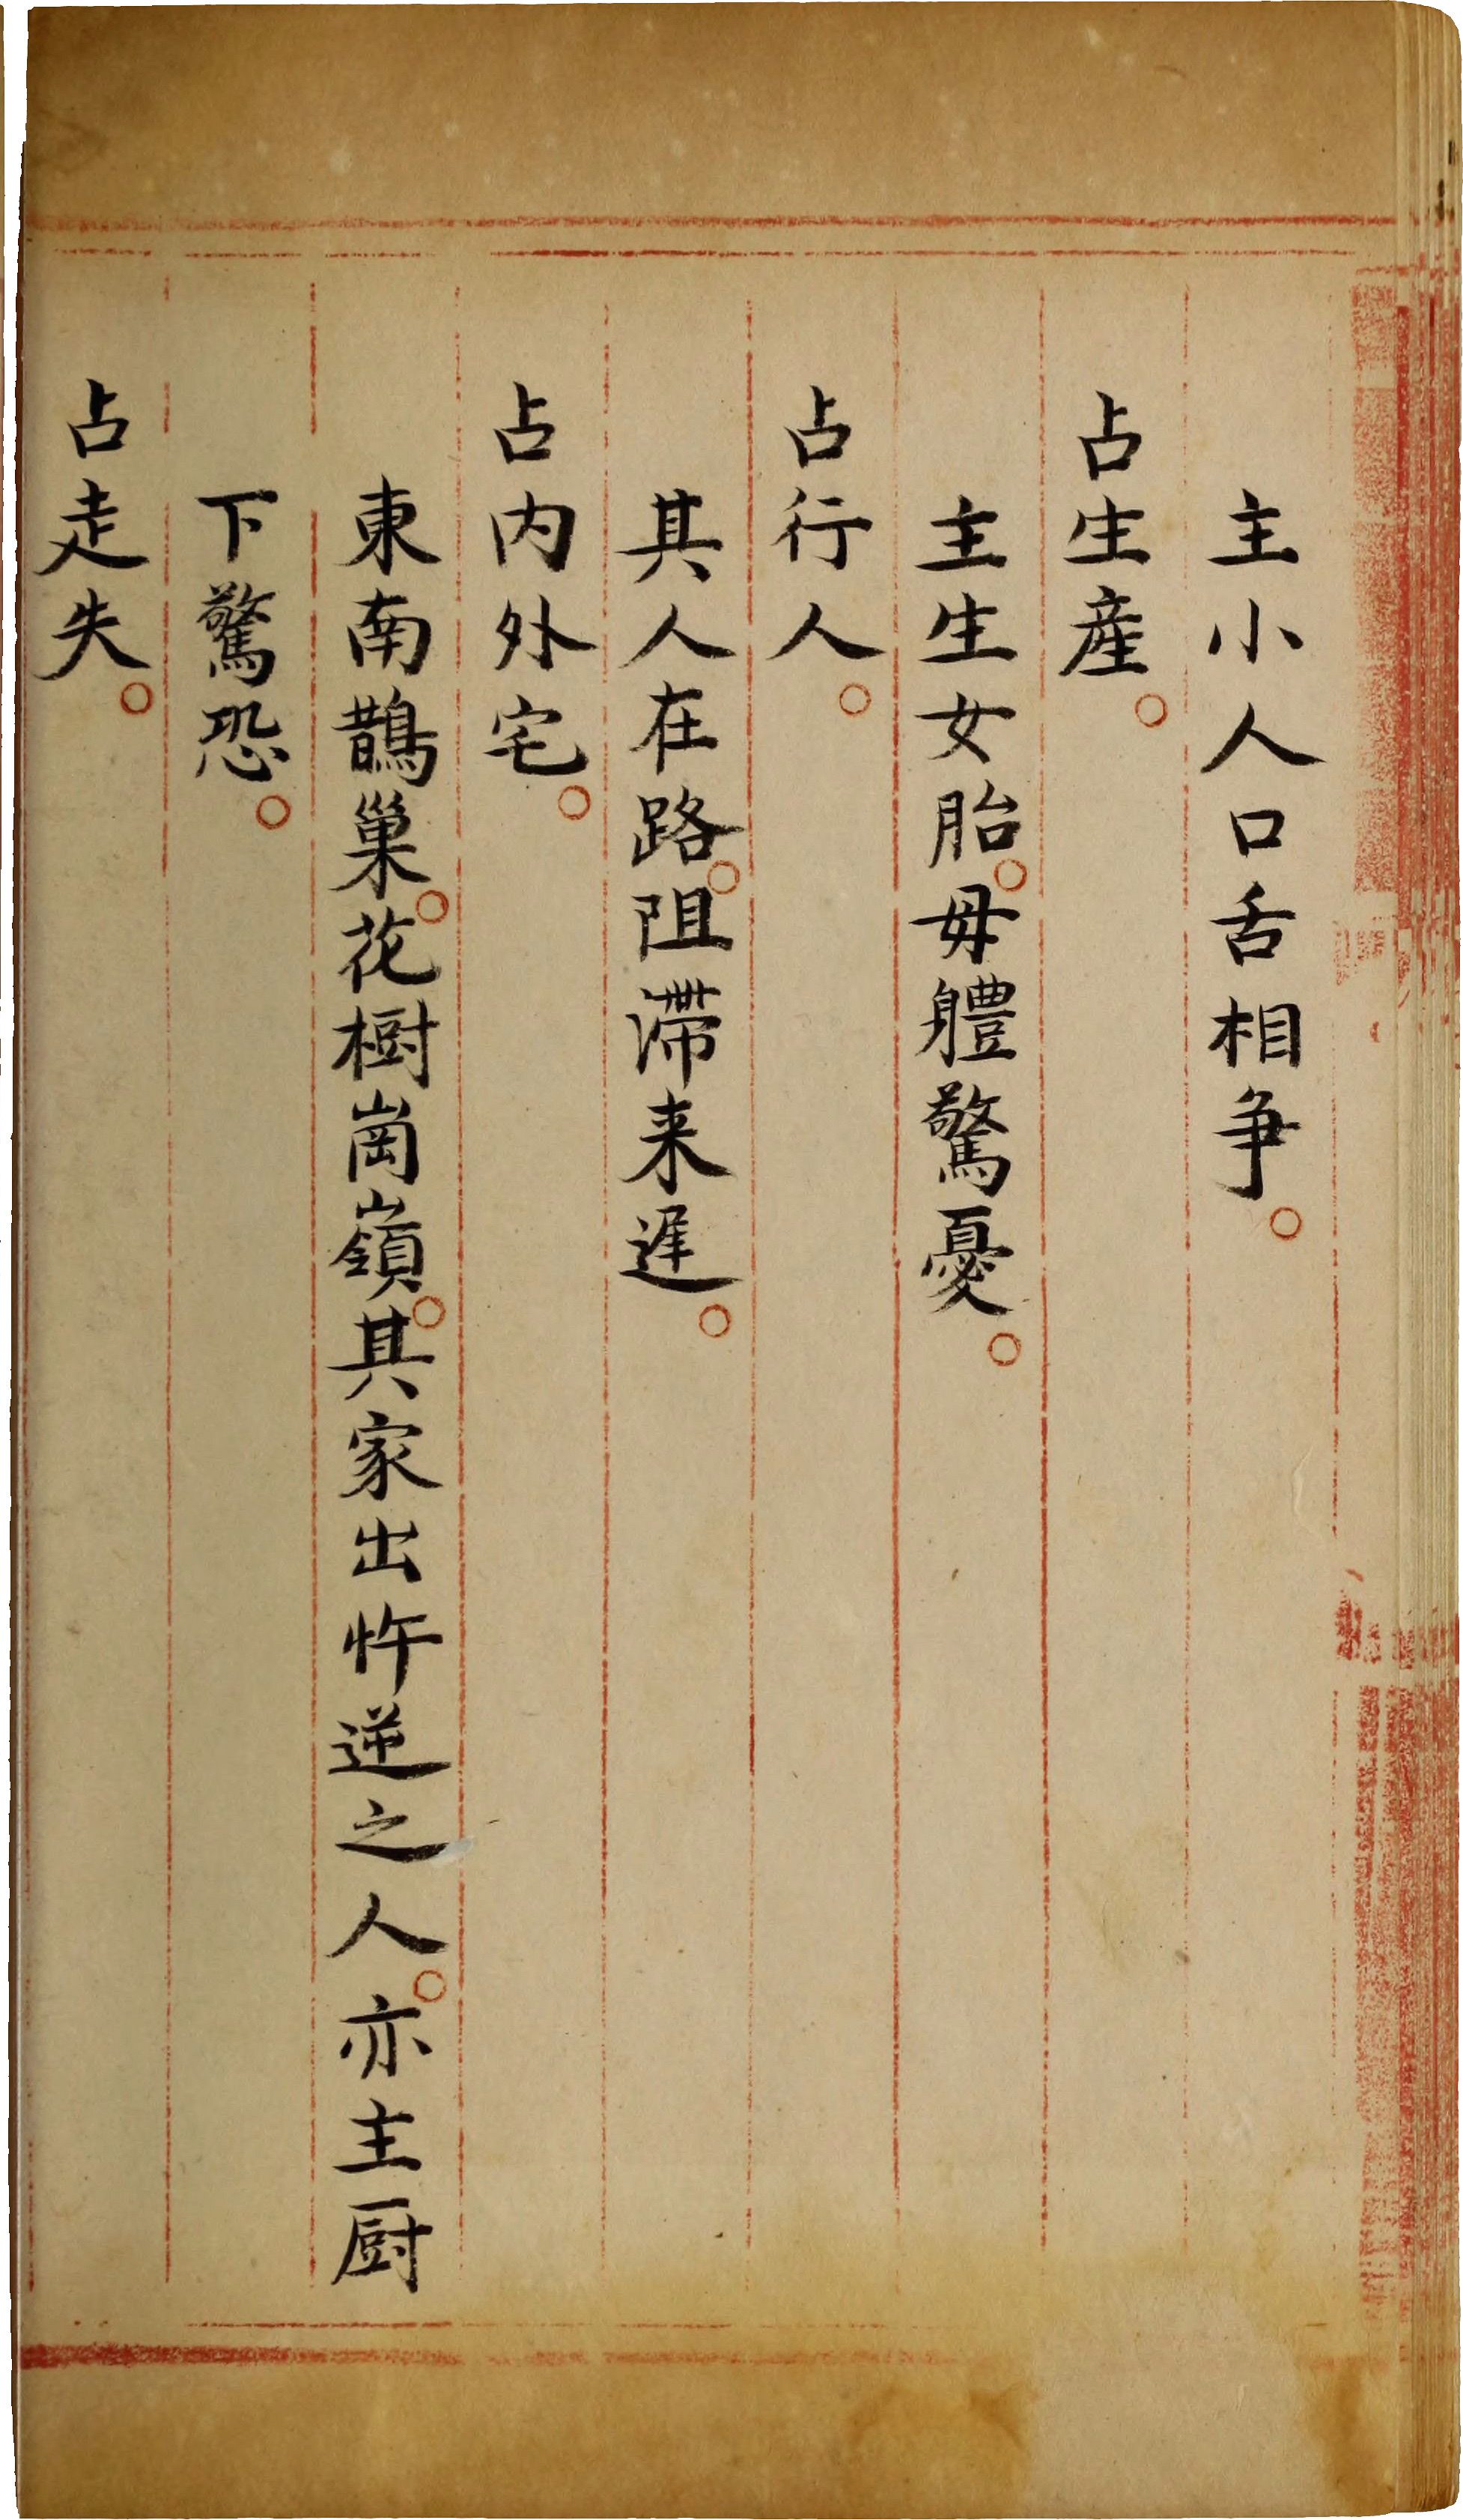 主小人口舌相争。
占生産。
主生女胎。母軆驚憂。
占行人。
其人在路。阻滯来遲。
占内外宅。
東南鵲巢。花樹崗嶺。其家出忤逆之人。亦主厨
下驚恐。
占走失。